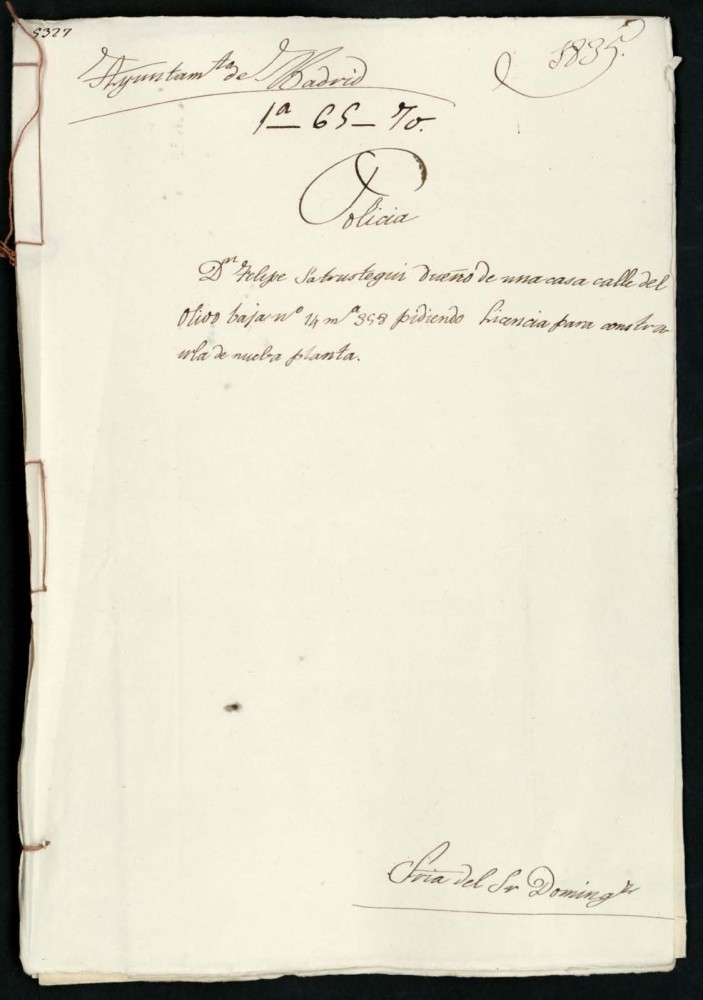 5327
Ayuntam.to de Madrid
1835.
1ª-65-70.
Policia
Dn Felipe Satrustegui dueño de una casa calle del
Olivo baja nº 14 mª 353 pidiendo Licencia para constru-
irla de nueba planta.
Sria del Sr Domingz